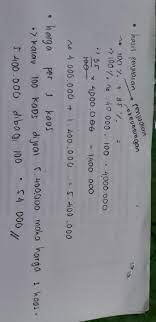 • hasil penjualan = penjualan + keuntungan
→ 100% + 35%
→ 100% = 40.000 . 100 = 4.000.000
35/100 × 4.000.000 = 1.400.000
→ 4.000.000 + 1.400.000 = 5.400.000
• harga per 1 kaos
→ kalau 100 kaos dijual 5.400.000 maka harga 1 kaos =
5.400.000 dibagi 100 = 54.000 //